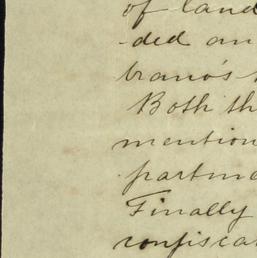 of land
ded an
brano's
Both th
mention
partme
Finally
confiscat